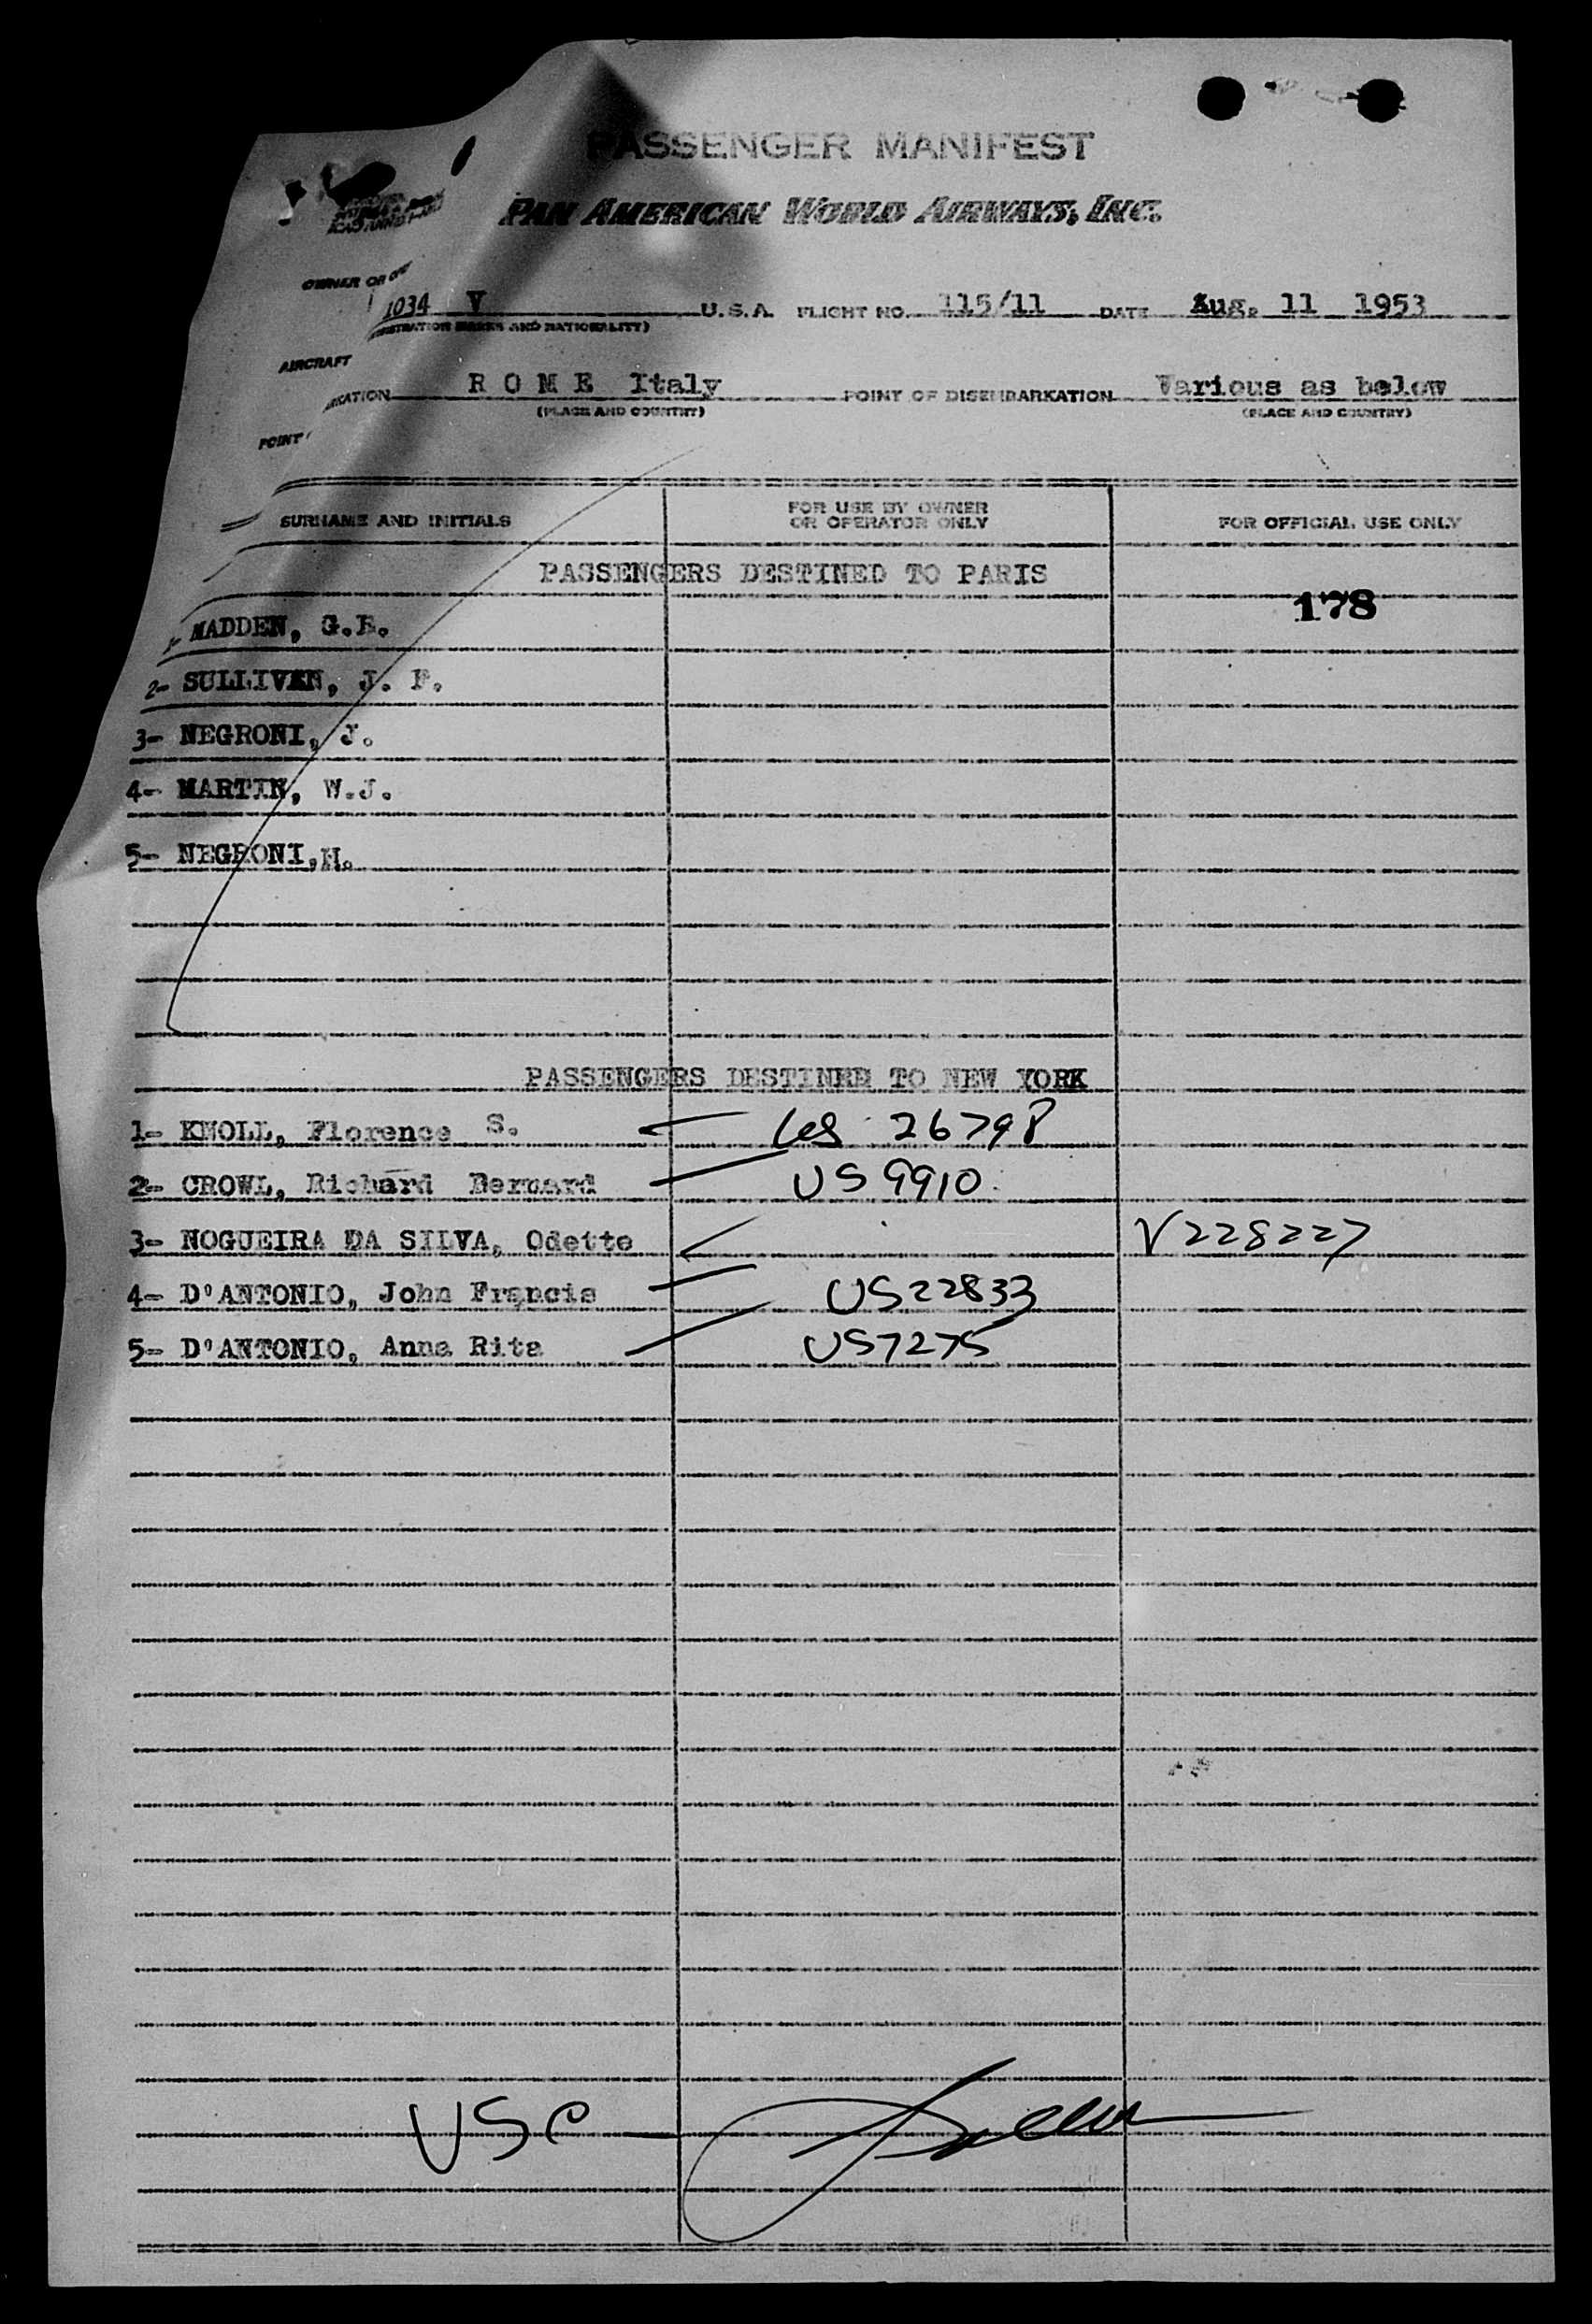 PASSENGER MANIFEST
PAN AMERICAN WORLD AIRWAYS, INC.
OWNER OR
1034 V U.S.A. FLIGHT NO. 115/11 DATE Aug. 11 1953
MARKS AND NATIONALITY)
AIRCRAFT
ROME Italy POINT OF DISEMBARKATION Various as below
(PLACE AND COUNTRY) (PLACE AND COUNTRY)
POINT
SURNAME AND INITIALS FOR USE BY OWNER OR OPERATOR ONLY FOR OFFICIAL USE ONLY
PASSENGERS DESTINED TO PARIS
178
1- MADDEN, G.E.
2- SULLIVAN, J. F.
3- NEGRONI, J.
4- MARTIN, W.J.
5- NEGRONI, H.
PASSENGERS DESTINED TO NEW YORK
1- KNOLL, Florence S. US 26798
2- CROWL, Richard Bernard US 9910
3- NOGUEIRA DA SILVA, Odette V228227
4- D'ANTONIO, John Francis US22833
5- D'ANTONIO, Anna Rita US7275
USC